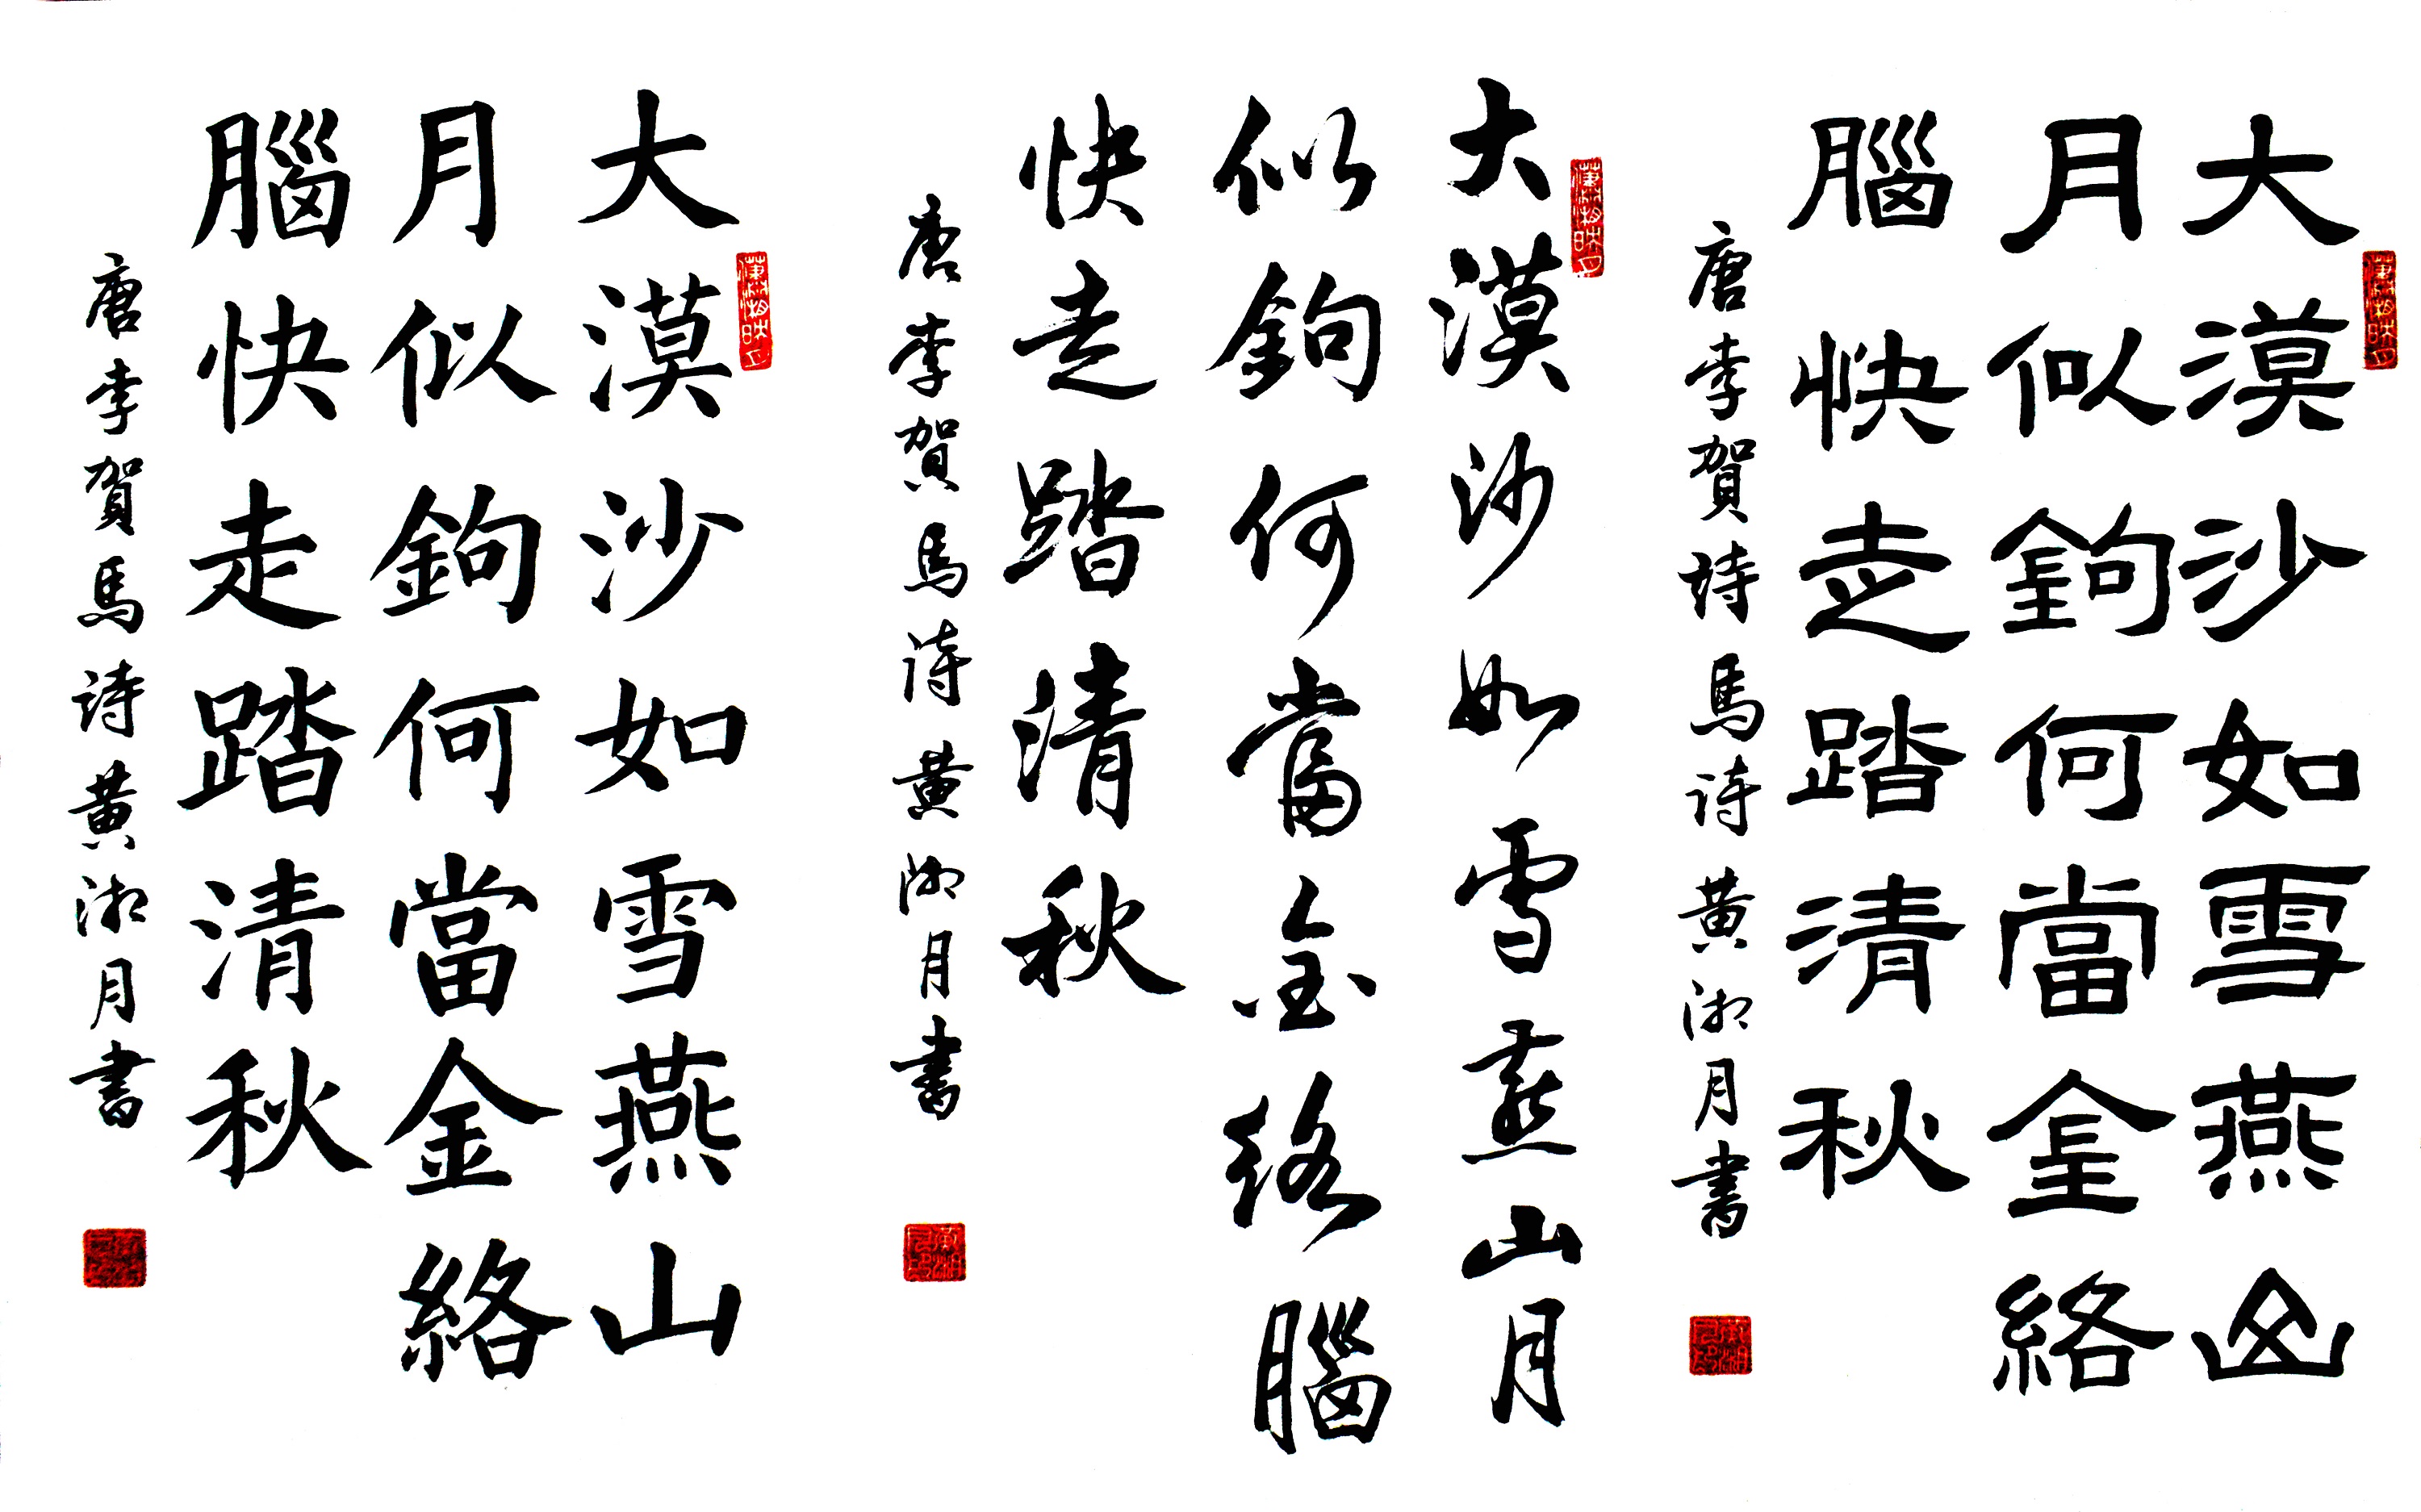 大漠沙如雪燕山
月似鉤何當金絡
腦快走踏清秋
唐李賀詩馬詩黃湘月書
大漠沙如雪燕山月
似鉤何當金絡腦
快走踏清秋
唐李賀馬詩黃湘月書
大漠沙如雪燕山
月似鉤何當金絡
腦快走踏清秋
唐李賀馬詩黃湘月書